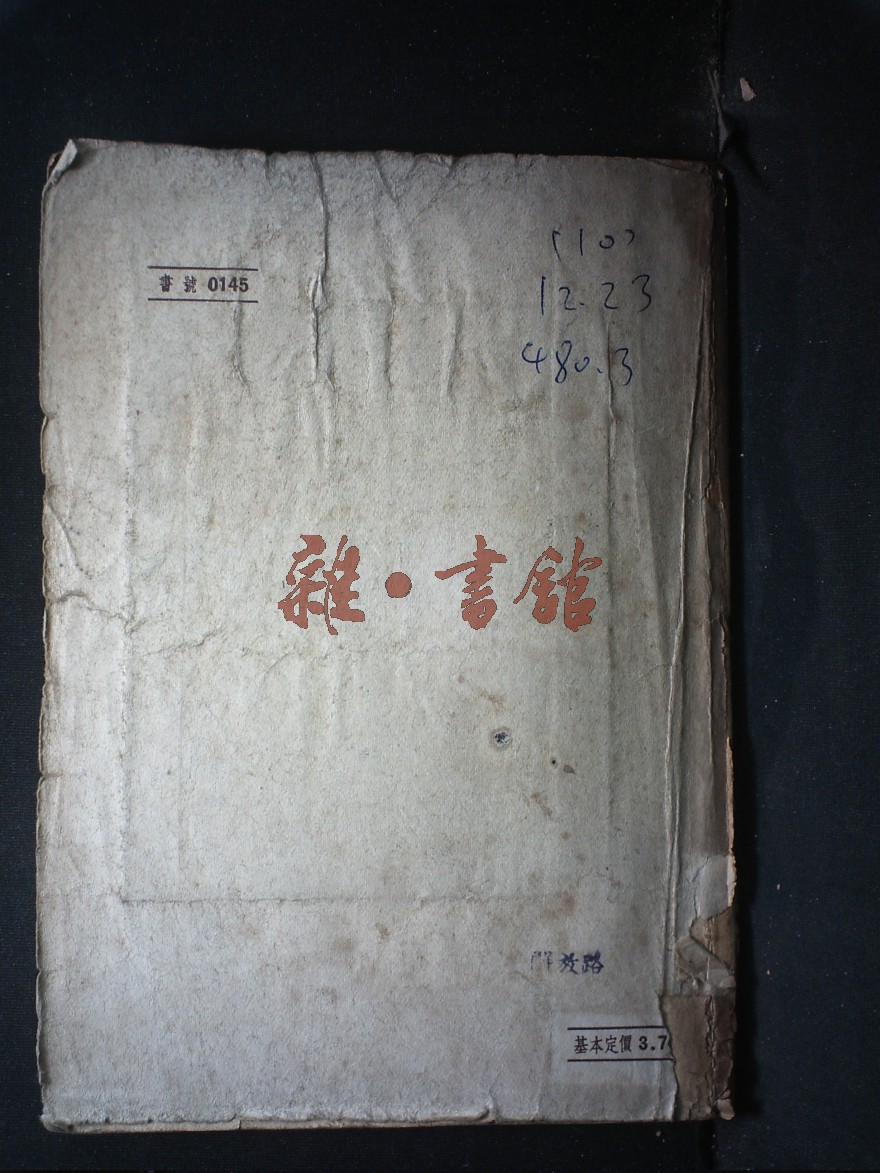 (10)
書號 0145
12.23
480.3
雜·書館
解放路
基本定價 3.7